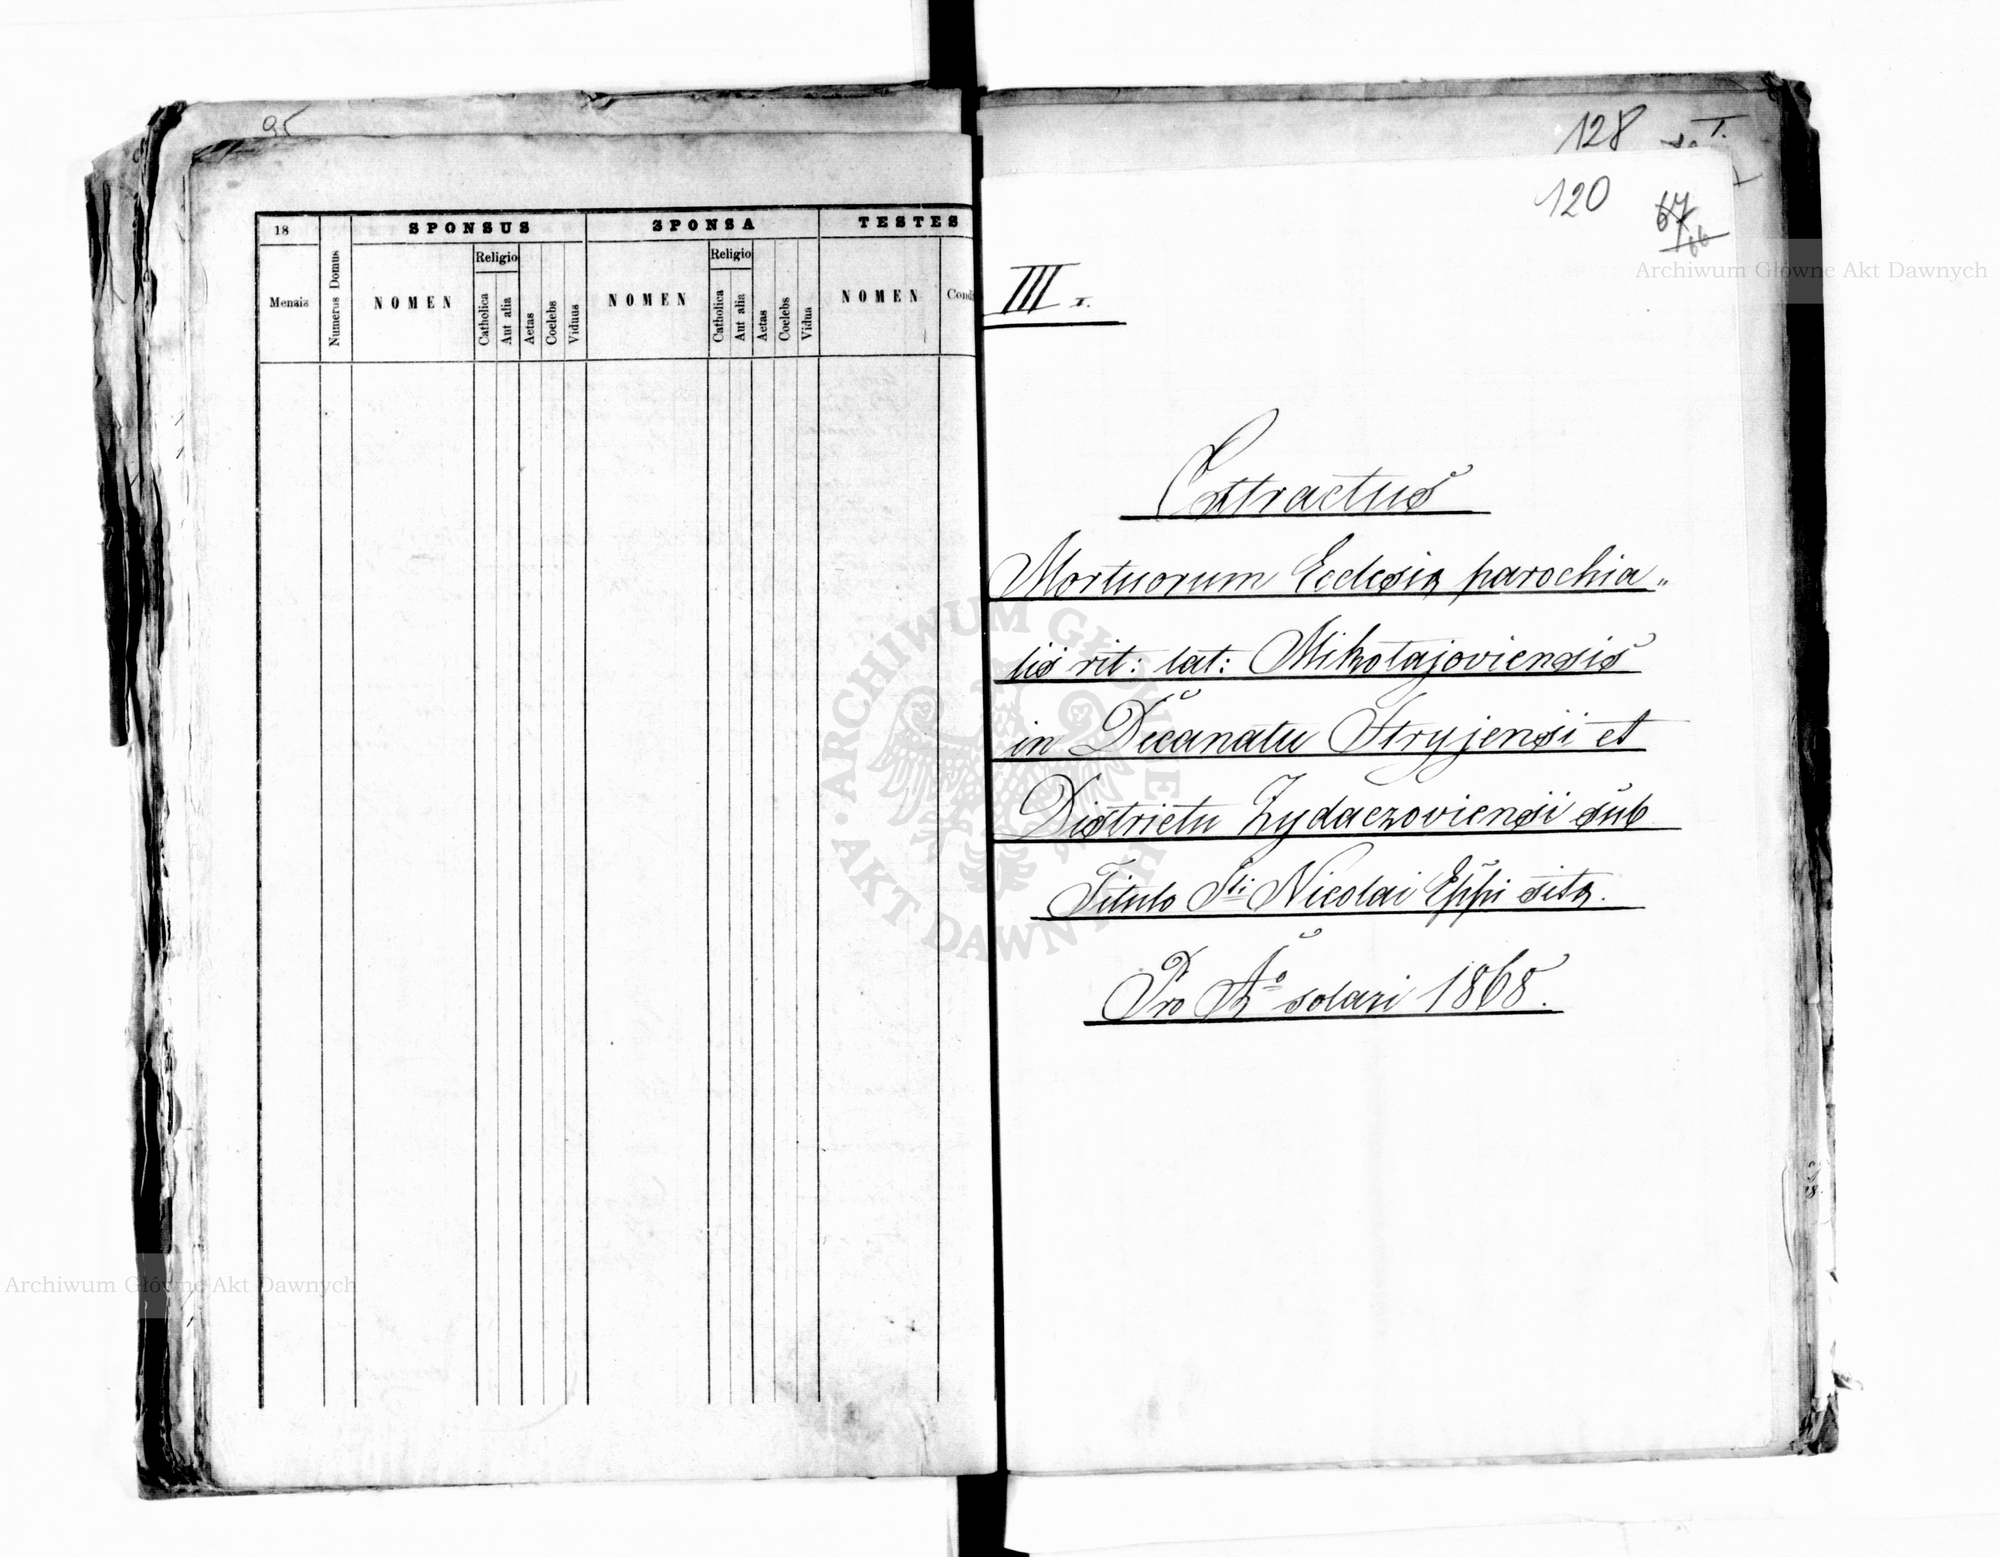 95
18
SPONSUS
SPONSA
TESTES
Mensis
Numerus Domus
NOMEN
Religio
Catholica
Aut alia
Aetas
Coelebs
Viduus
NOMEN
Religio
Catholica
Aut alia
Aetas
Coelebs
Vidua
NOMEN
Condi
128
120
III
Extractus
Mortuorum Ecclesiæ parochia„
lis rit: lat: Mikołajoviensis
in Decanatu Stryjensi et
Districtu Zydaczoviensi sub
Titulo Sti Nicolai Eppi sitæ.
Pro Ao solari 1868.
Archiwum Główne Akt Dawnych
Archiwum Główne Akt Dawnych
ARCHIWUM GŁÓWNE AKT DAWNYCH